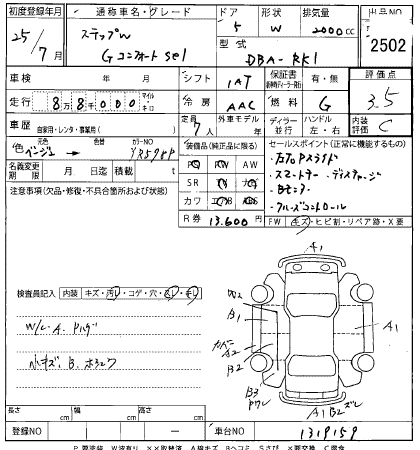 初度登録年月 通称車名・グレード ドア 形状 排気量 出品NO
25/7月 ステップW 5 W 2000cc 2502
G コンフォート sel 型式 DBA-RK1
車検 年 月 シフト 1AT 保証書 有・無 評価点
走行 8万8千000 マイル・キロ 冷房 AAC 燃料 G 3.5
車歴 自家用・レンタ・事業用( ) 定員 7人 外車モデル 年 ディーラー・並行 ハンドル 左・右 内装評価 C
色 ベージュ 元色 色替 カラーNO YR578P
名義変更期限 月 日 積載 t
装備品(純正品に限る)
PS PW AW
SR ナビ TV
カワ エアB ABS
R券 13,600円
セールスポイント(正常に機能するもの)
左右Pスライド
スマートキー ディスチャージ
Bモニタ
クルーズコントロール
FW キズ・ヒビ割・リペア跡・X要
注意事項(欠品・修復・不具合箇所および状態)
検査員記入 内装 キズ・汚レ・コゲ・穴
W/L・A.
小キズ、B.
A1
W2
B1
A2
B2
B3
A1
A1 B2 ズレ
長さ cm 幅 cm 高さ cm
登録NO 車台NO 1319159